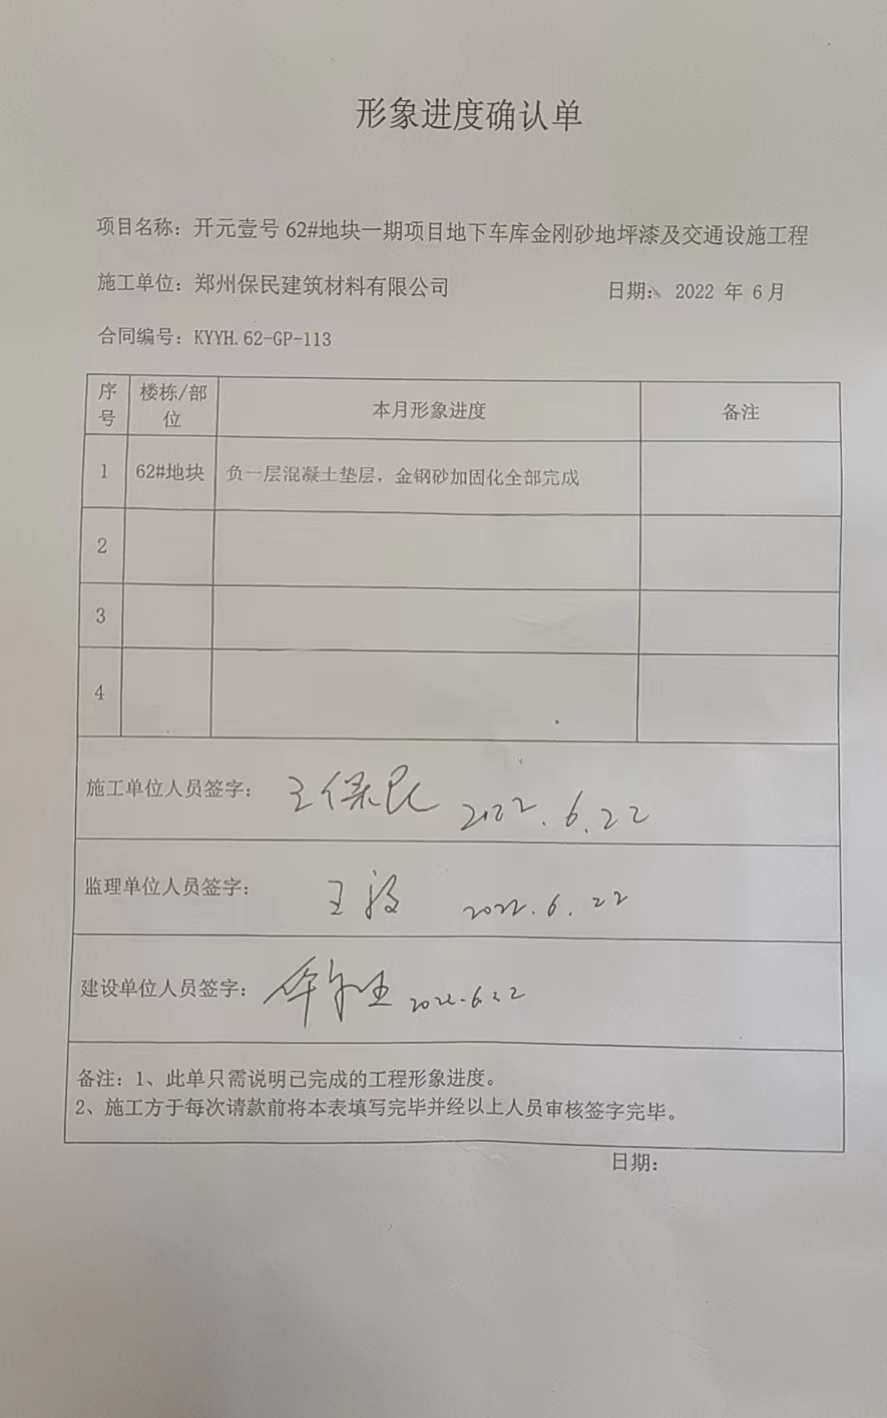 形象进度确认单
项目名称：开元壹号 62#地块一期项目地下车库金刚砂地坪漆及交通设施工程
施工单位：郑州保民建筑材料有限公司 日期： 2022 年 6 月
合同编号：KYYH.62-GP-113
序号 楼栋/部位 本月形象进度 备注
1 62#地块 负一层混凝土垫层，金钢砂加固化全部完成
2
3
4
施工单位人员签字： 王保民 2022.6.22
监理单位人员签字： 王 2022.6.22
建设单位人员签字： 2022.6.22
备注：1、此单只需说明已完成的工程形象进度。
2、施工方于每次请款前将本表填写完毕并经以上人员审核签字完毕。
日期：